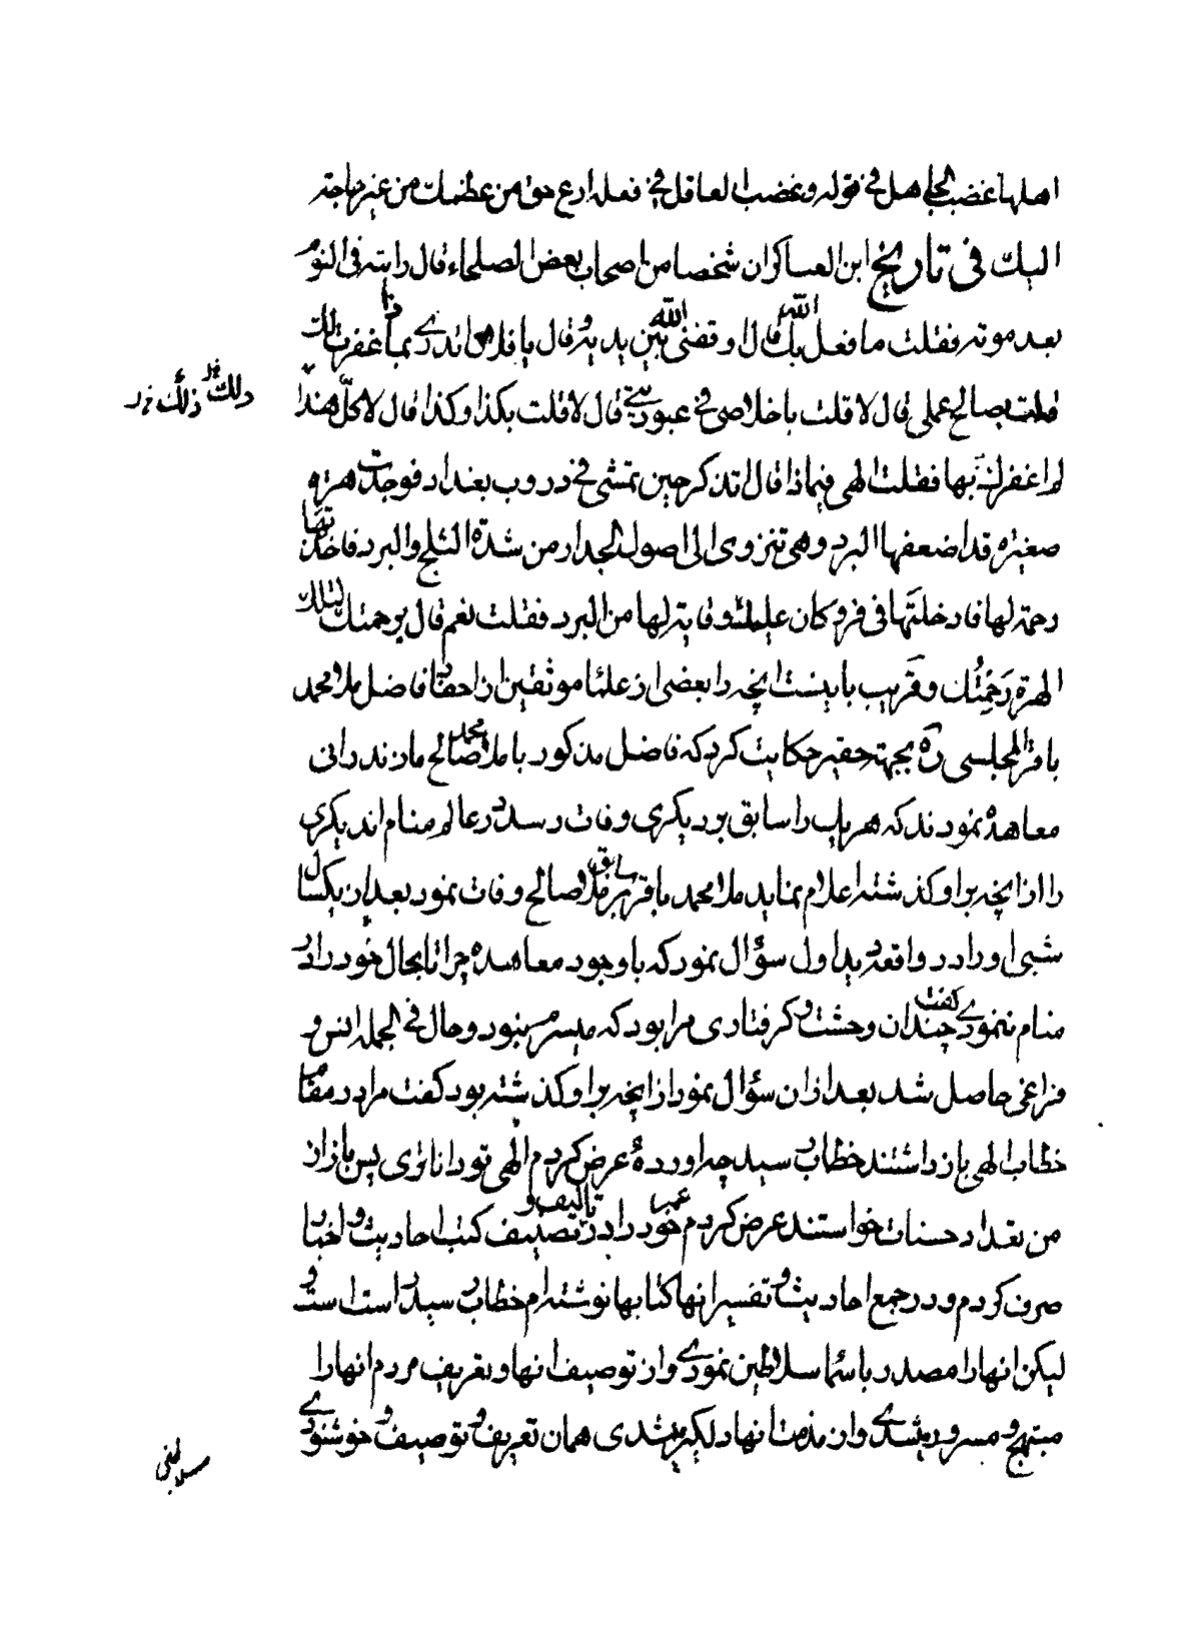 اهلها غضب الجاهل فی قوله و غضب العاقل فی فعله ارع حق من عظمك من غیر حاجة
الیك فی تاریخ ابن العساکر ان شخصا من اصحاب بعض الصلحاء قال رایته فی النوم
بعد موته فقلت ما فعل الله بك قال اوقفنی الله بین یدیه و قال یا فلان اتدری بماذا غفرت لك
قلت بصالح عملی قال لا قلت باخلاصی فی عبودیتی قال لا قلت بکذا و کذا قال لا کل هذا
لم اغفر لك بها فقلت الهی فبماذا قال اتذکر حین تمشی فی دروب بغداد فوجدت هرة
صغیره قد اضعفها البرد و هی تنزوی الی اصول الجدار من شدة الثلج و البرد فاخذتها
رحمة لها فادخلتها فی فرو کان علیك وقایة لها من البرد فقلت نعم قال برحمتك لتلك
الهرة رحمتك و قریب باینست انچه را بعضی از علما موثقین از احفاد فاضل ملا محمد
باقر المجلسی ره بجهة حقیر حکایت کرد که فاضل مذکور با ملا محمد صالح مازندرانی
معاهده نمودند که هر یك را سابق بر دیکری وفات رسد در عالم منام ان دیکری
را از انچه بر او کذشته اعلام نماید ملا محمد باقر سابق بر ملا صالح وفات نمود بعد از یکسال
شبی او را در واقعه دید اول سؤال نمود که با وجود معاهده چرا تا بحال خود را در
منام ننمودی کفت چندان وحشت و کرفتاری مرا بود که میسر نبود و حال فی الجمله انس و
فراغی حاصل شد بعد از ان سؤال نمود از انچه بر او کذشته بود کفت مرا در مقام
خطاب الهی باز داشتند خطاب رسید چه اوردهٔ عرض کردم الهی تو داناتری پس باز ان
من تعداد حسنات خواستند عرض کردم عمر خود را در تالیف و تصنیف کتب احادیث و اخبار
صرف کردم و در جمع احادیث و تفسیر انها کتابها نوشته‌ام خطاب رسید راست است و
لیکن انها را مصدر باسماء سلاطین نمودی و از توصیف انها و تعریف مردم انها را
مبتهج و مسرور میشدی و از مذمت انها دلکیر میشدی همان تعریف و توصیف و خوشنودی
ذلك